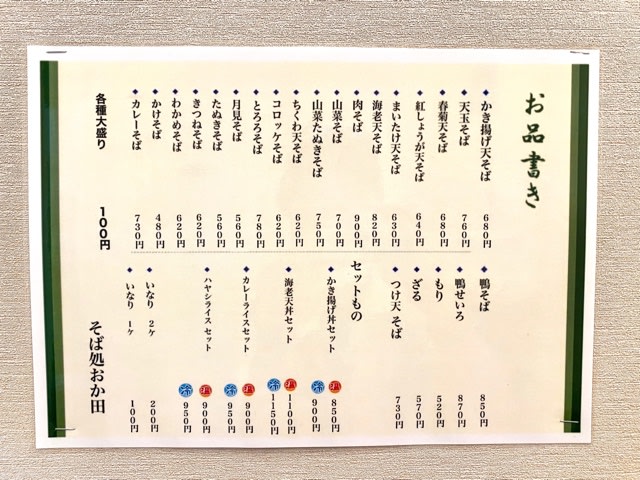 お品書き
かき揚げ天そば 680円
天玉そば 760円
春菊天そば 680円
紅しょうが天そば 640円
まいたけ天そば 630円
海老天そば 820円
肉そば 900円
山菜そば 700円
山菜たぬきそば 750円
ちくわ天そば 620円
コロッケそば 620円
とろろそば 780円
月見そば 560円
たぬきそば 560円
きつねそば 620円
わかめそば 620円
かけそば 480円
カレーそば 730円
各種大盛り 100円
鴨そば 850円
鴨せいろ 870円
もり 520円
ざる 570円
つけ天 そば 730円
セットもの
かき揚げ丼セット 温 850円
冷 900円
海老天丼セット 温 1100円
冷 1150円
カレーライスセット 温 900円
冷 950円
ハヤシライス セット 温 900円
冷 950円
いなり 2ヶ 200円
いなり 1ヶ 100円
そば処おか田